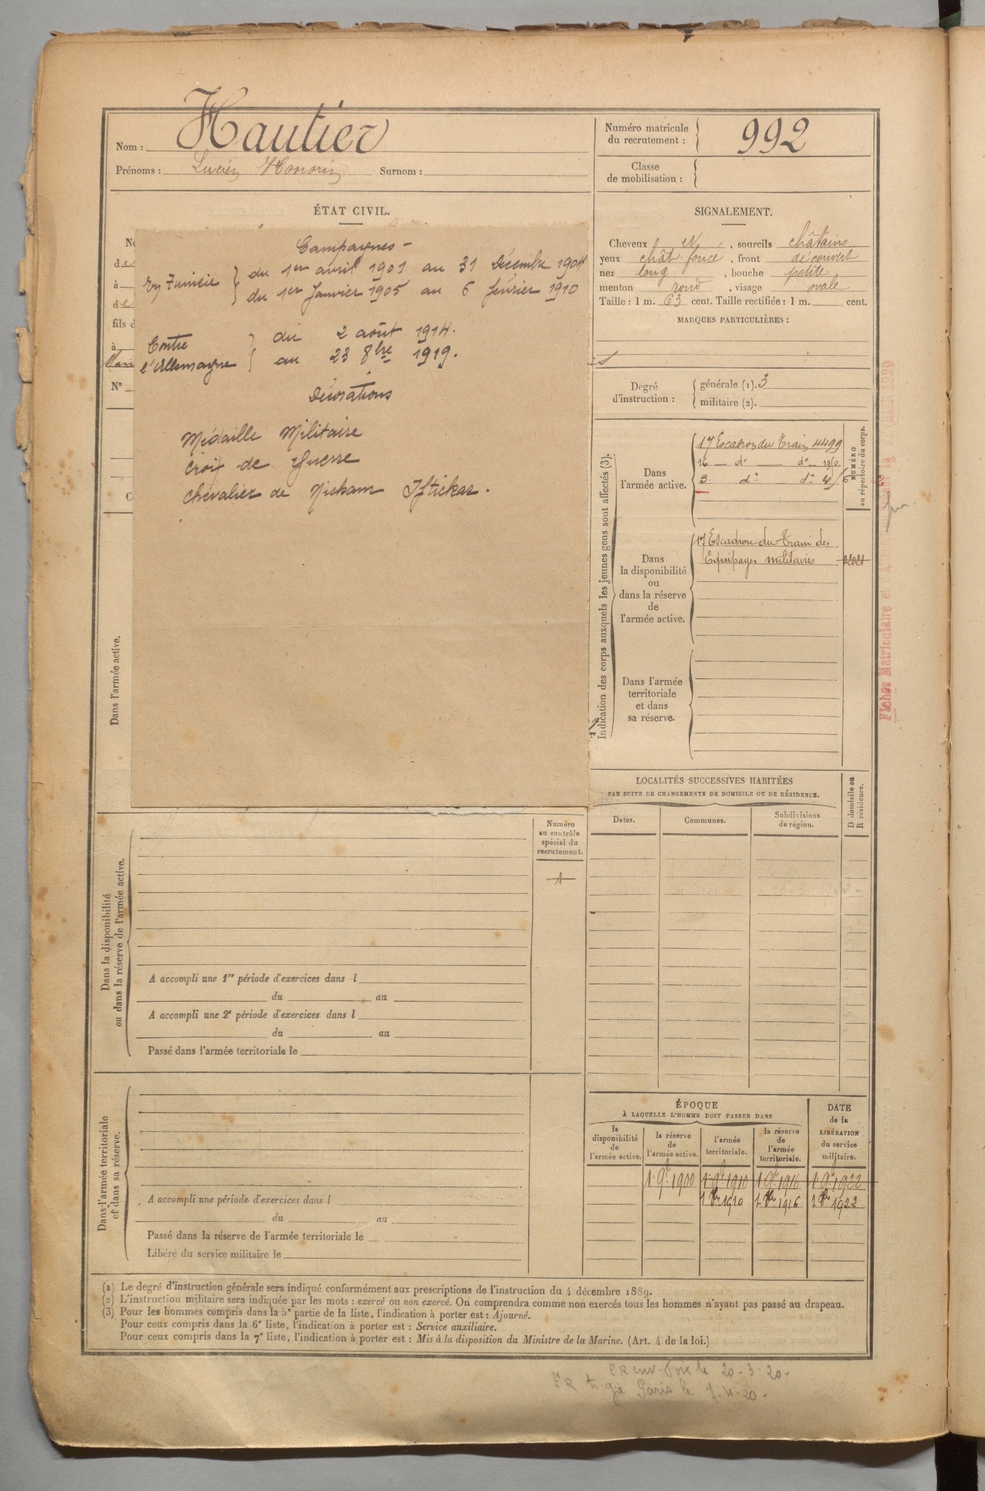 Nom : Hautier
Prénoms : Lucien Honoré Surnom :
Numéro matricule
du recrutement : 992
Classe
de mobilisation :
ÉTAT CIVIL.
Campagnes -
En Tunisie du 1er avril 1901 au 31 Décembre 1904
du 1er Janvier 1905 au 6 février 1910
Contre du 2 août 1914.
l'Allemagne au 23 8bre 1919.
Décorations
Médaille Militaire
Croix de Guerre
Chevalier de Nicham Iftickar.
fils d
N°
SIGNALEMENT.
Cheveux , sourcils châtains
yeux chât. foncé , front découvert
nez long , bouche petite
menton rond , visage ovale
Taille : 1 m. 63 cent. Taille rectifiée : 1 m. cent.
MARQUES PARTICULIÈRES :
Degré
d'instruction :
générale (1). 3
militaire (2).
Indication des corps auxquels les jeunes gens sont affectés (3).
Dans
l'armée active.
17 Escadron du Train 4499
16 — d° — d°
d° d°
NUMÉRO
au répertoire du corps.
Dans
la disponibilité
ou
dans la réserve
de
l'armée active.
17 Escadron du Train des
Équipages militaires
Dans l'armée
territoriale
et dans
sa réserve.
LOCALITÉS SUCCESSIVES HABITÉES
PAR SUITE DE CHANGEMENTS DE DOMICILE OU DE RÉSIDENCE.
Dates.
Communes.
Subdivisions
de région.
D domicile ou
R résidence.
Dans l'armée active.
Numéro
au contrôle
spécial du
recrutement.
1
Dans la disponibilité
ou dans la réserve de l'armée active.
A accompli une 1re période d'exercices dans l
du au
A accompli une 2e période d'exercices dans l
du au
Passé dans l'armée territoriale le
Dans l'armée territoriale
et dans sa réserve.
A accompli une période d'exercices dans l
du au
Passé dans la réserve de l'armée territoriale le
Libéré du service militaire le
ÉPOQUE
À LAQUELLE L'HOMME DOIT PASSER DANS
la
disponibilité
de
l'armée active.
la réserve
de
l'armée active.
l'armée
territoriale.
la réserve
de
l'armée
territoriale.
DATE
de la
LIBÉRATION
du service
militaire.
1 9bre 1900 1 9bre 1910 1 9bre 1916 1 9bre 1922
(1) Le degré d'instruction générale sera indiqué conformément aux prescriptions de l'instruction du 4 décembre 1889.
(2) L'instruction militaire sera indiquée par les mots : exercé ou non exercé. On comprendra comme non exercés tous les hommes n'ayant pas passé au drapeau.
(3) Pour les hommes compris dans la 5e partie de la liste, l'indication à porter est : Ajourné.
Pour ceux compris dans la 6e liste, l'indication à porter est : Service auxiliaire.
Pour ceux compris dans la 7e liste, l'indication à porter est : Mis à la disposition du Ministre de la Marine. (Art. 4 de la loi.)
le 20-3-20.
Paris le